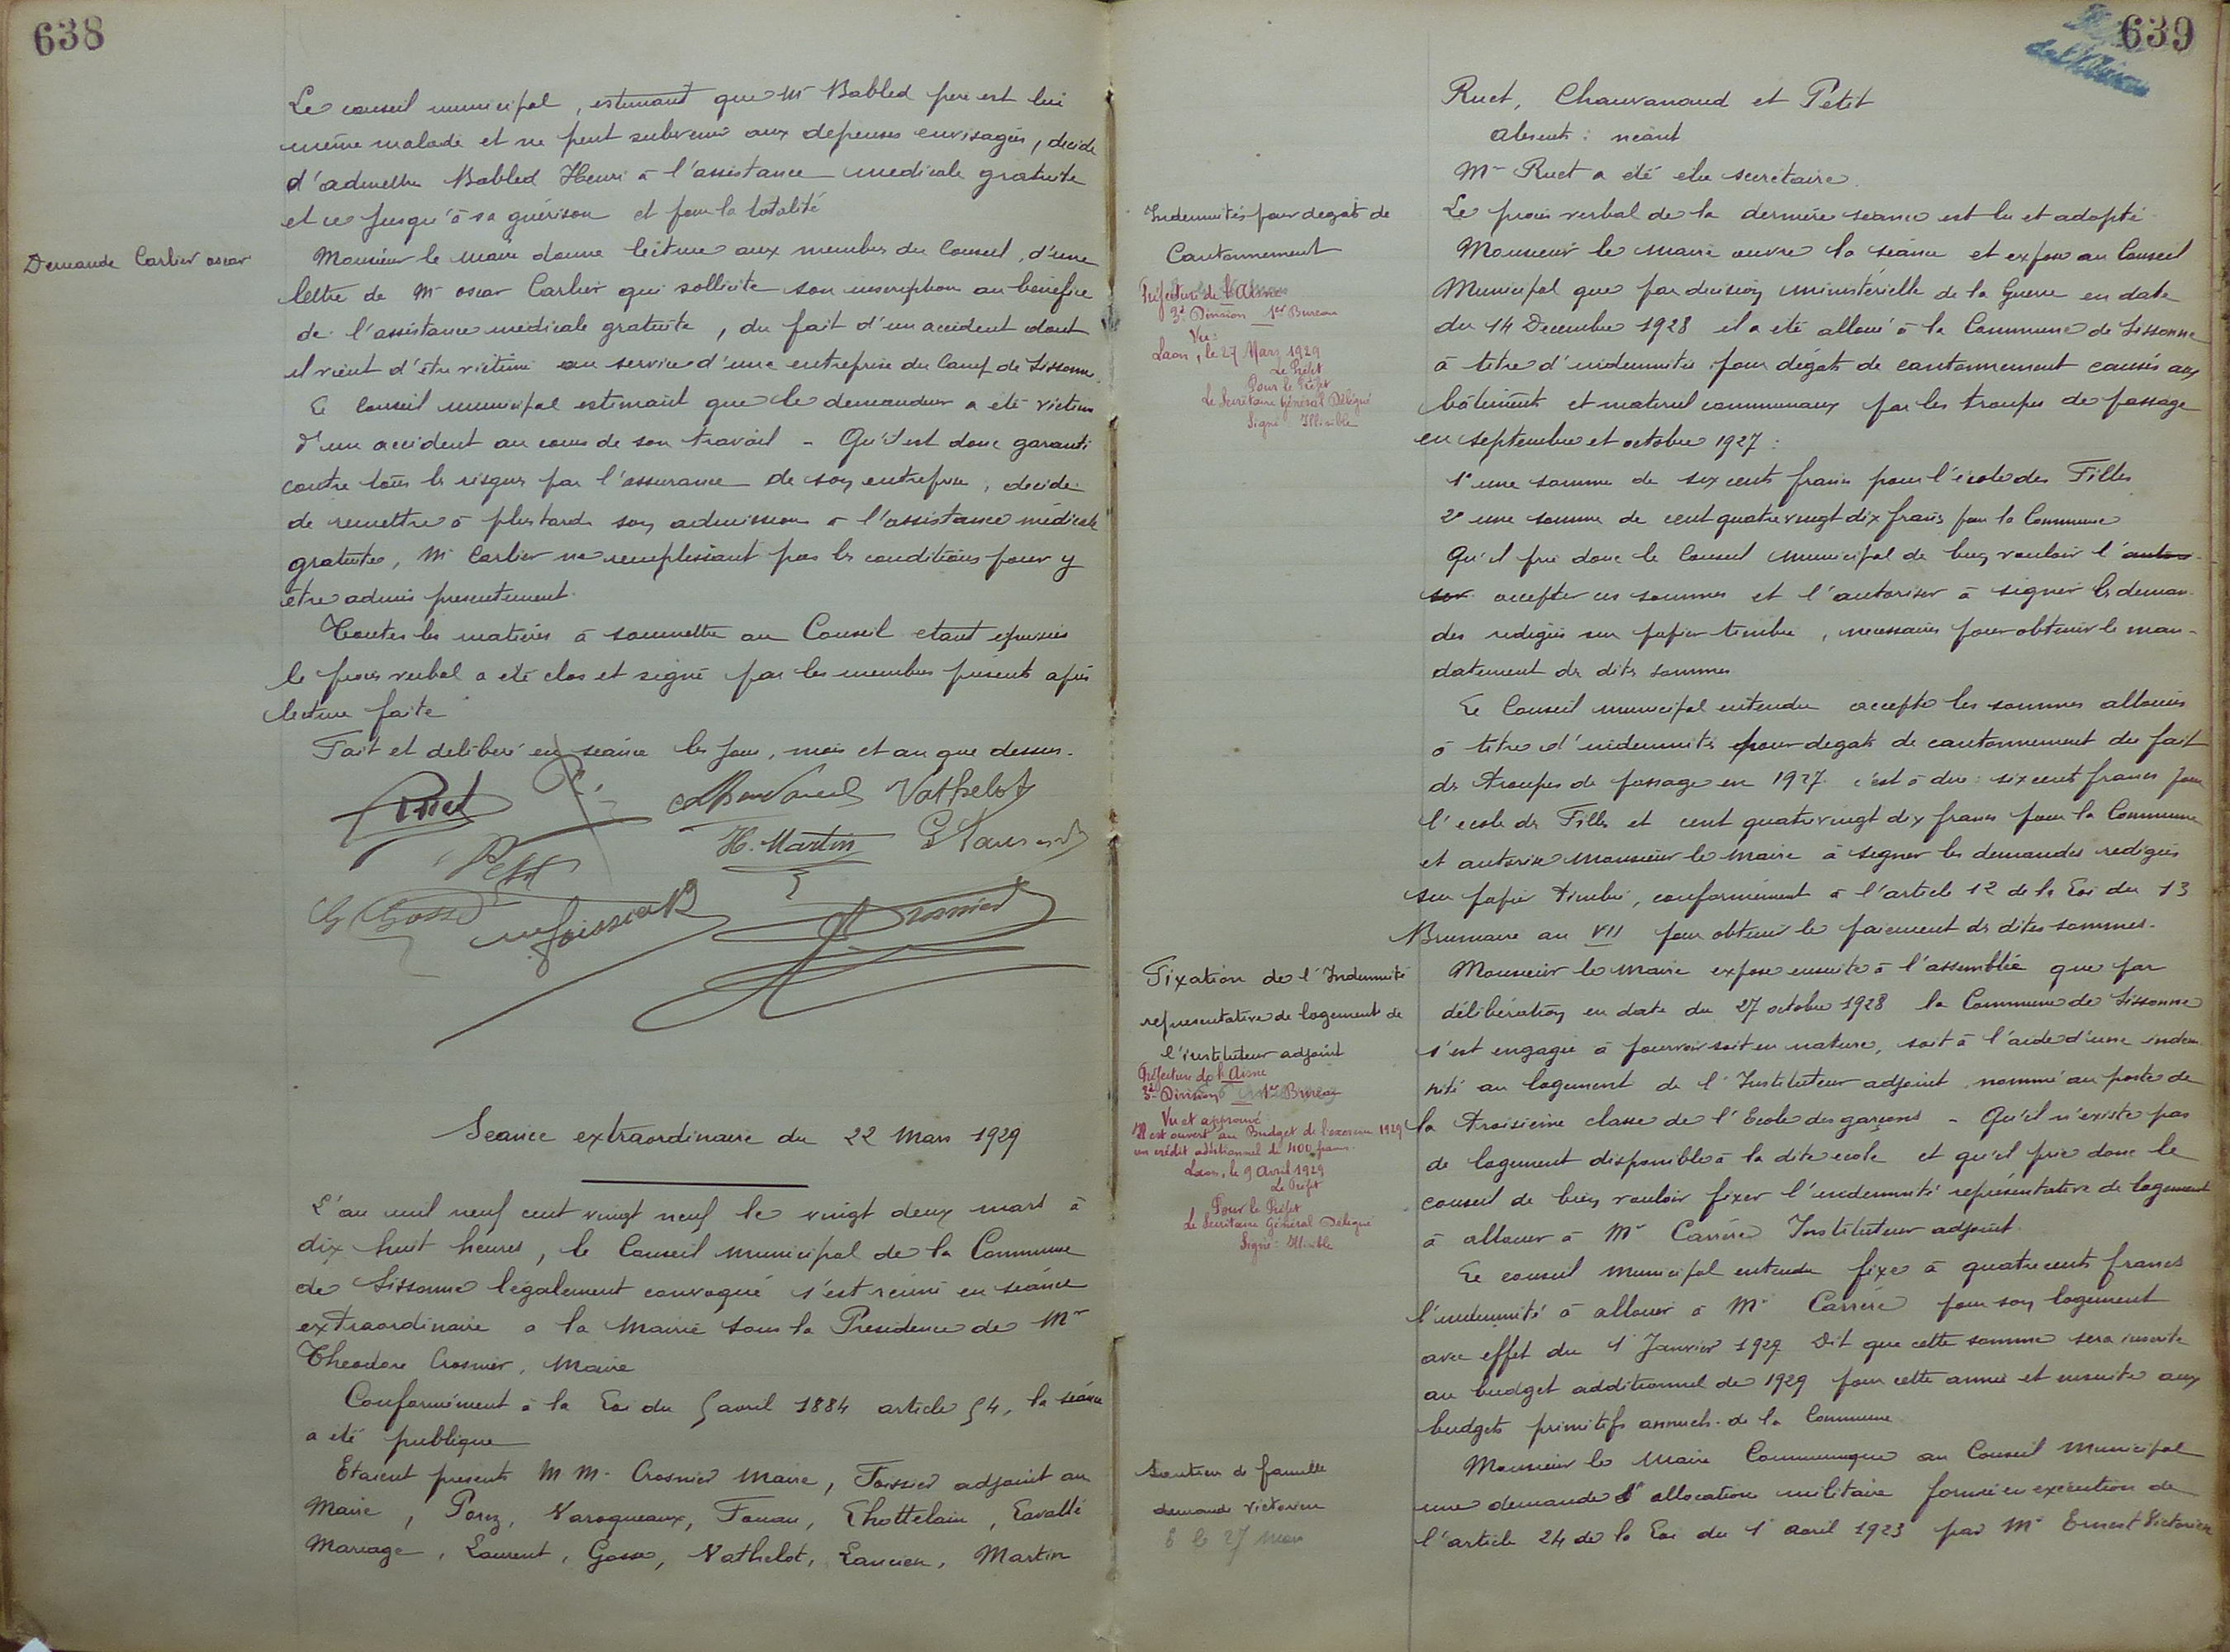 638
Le conseil municipal, estimant que Mr Babled pere est lui
même malade et ne peut subvenir aux depenses envisagées, decide
d'admettre Babled Henri à l'assistance medicale gratuite
et ce jusqu'à sa guérison et pour la totalité
Demande Carlier oscar
Monsieur le maire donne lecture aux membres du Conseil, d'une
lettre de Mr oscar Carlier qui sollicite son inscription au bénéfice
de l'assistance médicale gratuite, du fait d'un accident dont
il vient d'être victime au service d'une entreprise du Camp de Sissonne.
Le Conseil municipal estimant que le demandeur a été victime
d'un accident au cours de son travail - Qu'il est donc garanti
contre tous les risques par l'assurance de son entreprise, decide
de remettre à plus tard son admission à l'assistance médicale
gratuite, Mr Carlier ne remplissant pas les conditions pour y
être admis presentement.
Toutes les matières à soumettre au Conseil etant epuisées
le procès verbal a été clos et signé par les membres présents après
lecture faite
Fait et deliberé en séance les jour, mois et an que dessus.
Ruet Vathelot
Petit H. Martin
G Gosse Crosnier
Seance extraordinaire du 22 Mars 1929
L'an mil neuf cent vingt neuf le vingt deux mars à
dix huit heures, le Conseil municipal de la Commune
de Sissonne légalement convoqué s'est réuni en séance
extraordinaire a la Mairie sous la Presidence de Mr
Theodore Crosnier, Maire
Conformément à la Loi du 5 avril 1884 article 54, la séance
a été publique
Etaient presents M M. Crosnier Maire, Foissier adjoint au
Maire, Varoqueaux, Fouau, Lhottelain, Lavallé
Mariage, Laurent, Gosse, Vathelot, Lancien, Martin
639
de l'Aisne
Ruet, Chauvanaud et Petit
Absents : néant
Mr Ruet a été elu secrétaire.
Le procès verbal de la dernière séance est lu et adopté
Indemnités pour degats de
Cantonnement
Préfecture de l'Aisne
3e Division 1er Bureau
Vu :
Laon, le 27 Mars 1929
Le Préfet
Pour le Préfet
Le Secrétaire Général Délégué
Signé : Illisible
Monsieur le Maire ouvre la séance et expose au Conseil
Municipal que par decision ministérielle de la Guerre en date
du 14 Decembre 1928 il a été alloué à la Commune de Sissonne
à titre d'indemnités pour dégats de cantonnement causés aux
bâtiments et materiel communaux par les troupes de passage
en septembre et octobre 1927 :
1° une somme de six cents francs pour l'école des Filles
2° une somme de cent quatre vingt dix francs pour la Commune
Qu'il prie donc le Conseil municipal de bien vouloir l'autori-
ser accepter ces sommes et l'autoriser à signer les deman-
des redigées sur papier timbré, necessaires pour obtenir le man-
datement des dites sommes
Le Conseil municipal entendu accepte les sommes allouées
à titre d'indemnités pour degats de cantonnement du fait
des troupes de passage en 1927. c'est à dire : six cents francs pour
l'ecole des Filles et cent quatre vingt dix francs pour la Commune
et autorise Monsieur le Maire à signer les demandes redigées
sur papier timbré, conformément à l'article 12 de la Loi du 13
Brumaire an VII pour obtenir le paiement des dites sommes.
Fixation de l'Indemnité
representative de logement de
l'instituteur adjoint
Préfecture de l'Aisne
3e Division 1er Bureau
Vu et approuvé
Il est ouvert au Budget de l'exercice 1929
un crédit additionnel de 400 francs.
Laon, le 9 Avril 1929
Le Préfet
Pour le Préfet
Le Secrétaire Général Délégué
Signé : Illisible
Monsieur le Maire expose ensuite à l'assemblée que par
délibération en date du 27 octobre 1928 la Commune de Sissonne
s'est engagée à pourvoir soit en nature, soit à l'aide d'une indem-
nité au logement de l'Instituteur adjoint nommé au poste de
la troisième classe de l'Ecole des garçons - Qu'il n'existe pas
de logement disponible à la dite ecole et qu'il prie donc le
conseil de bien vouloir fixer l'indemnité représentative de logement
à allouer à Mr Carrère Instituteur adjoint.
Le conseil municipal entendu fixe à quatre cents francs
l'indemnité à allouer à Mr Carrère pour son logement
avec effet du 1 Janvier 1929 Dit que cette somme sera inscrite
au budget additionnel de 1929 pour cette année et ensuite aux
budgets primitifs annuels de la Commune
Soutien de famille
demande Victorien
le 27 Mars
Monsieur le Maire Communique au Conseil Municipal
une demande d'allocation militaire formée en exécution de
l'article 24 de la Loi du 1 avril 1923 par Mr Ernest Victorien